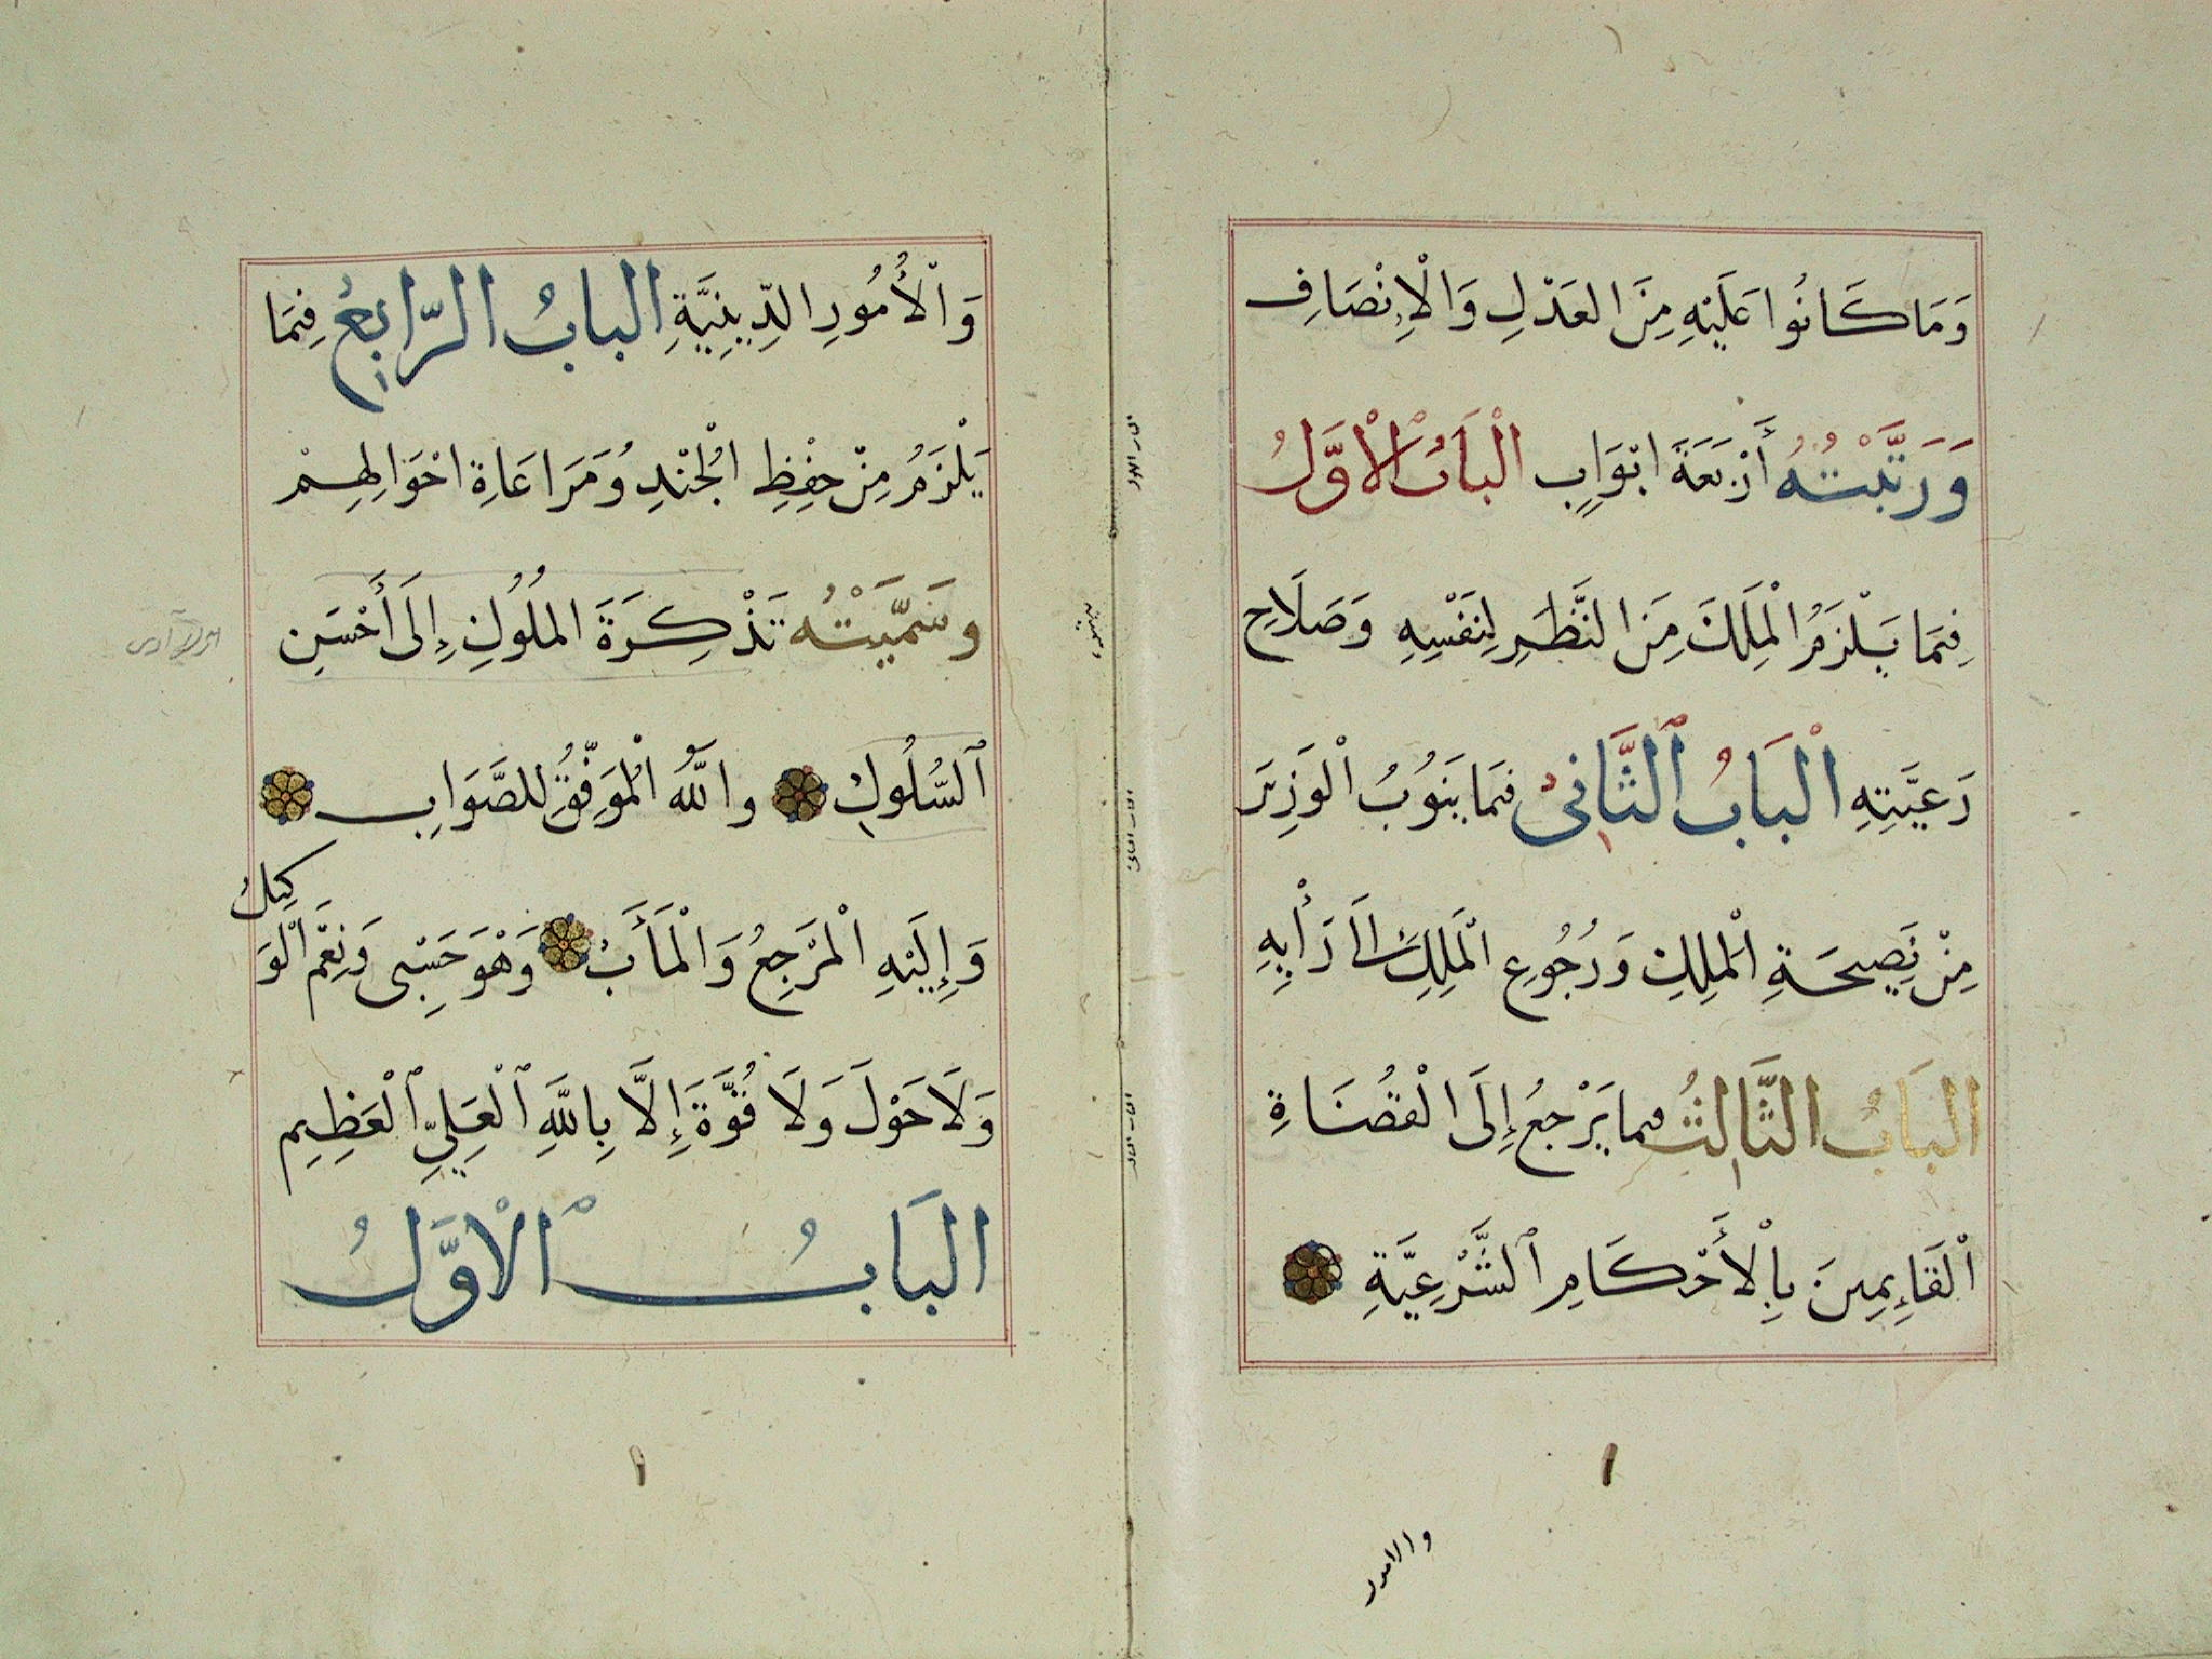 وَمَا كَانُوا عَلَيْهِ مِنَ العَدْلِ وَالْإِنْصَافِ
وَرَتَّبْتُهُ أَرْبَعَةَ ابْوَابٍ الْبَابُ الْاَوَّلُ
فِيمَا يَلْزَمُ الْمَلِكَ مِنَ النَّظَرِ لِنَفْسِهِ وَصَلَاحِ
رَعِيَّتِهِ الْبَابُ ٱلثَّانِىُ فيمَا يَنُوبُ الْوَزِيرَ
مِنْ نَصِيحَةِ الْمَلِكِ وَرُجُوعِ الْمَلِكِ الَى رَأْيِهِ
البَابُ الثَّالِثُ فيما يَرْجِعُ إِلَى الْقُضَاةِ
اْلقَايِمِينَ بِاْلأَحْكَامِ ٱلشَّرْعِيَّةِ
والامور
وَاْلأُمُورِ الدِّينِيَّةِ البابُ الرَّابِعُ فِيمَا
يَلْزَمُ مِنْ حِفْظِ الْجُنْدِ وَمَرَاعَاةِ احْوَالِهِمْ
وسَمَّيْتُه تَذْكِرَةَ المُلُوكِ إِلَى أَحْسَنِ
ٱلسُّلُوكِ واللَّهُ الْمُوَفِّقُ للصَّوَابِ
وَإِلَيْهِ الْمَرْجِعُ وَالْمَأَبُ وَهْوَ حَسْبِى وَنِعْمَ الْوَكِيلُ
وَلَا حَوْلَ وَلَا قُوَّةَ إِلَّا بِاللَّهِ ٱلْعَلِيِّ ٱلْعَظِيمِ
البَابُ ٱلْاوَّلُ